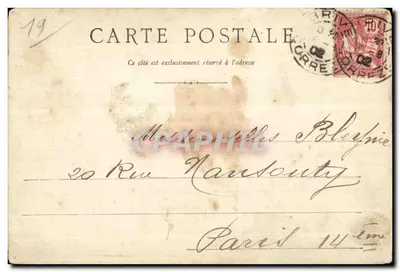 19
CARTE POSTALE
Ce côté est exclusivement réservé à l'adresse
BRIVE
CORREZE
10
02
Mesdemoiselles
20 Rue Nansouty
Paris 14ème
CPAPHIL